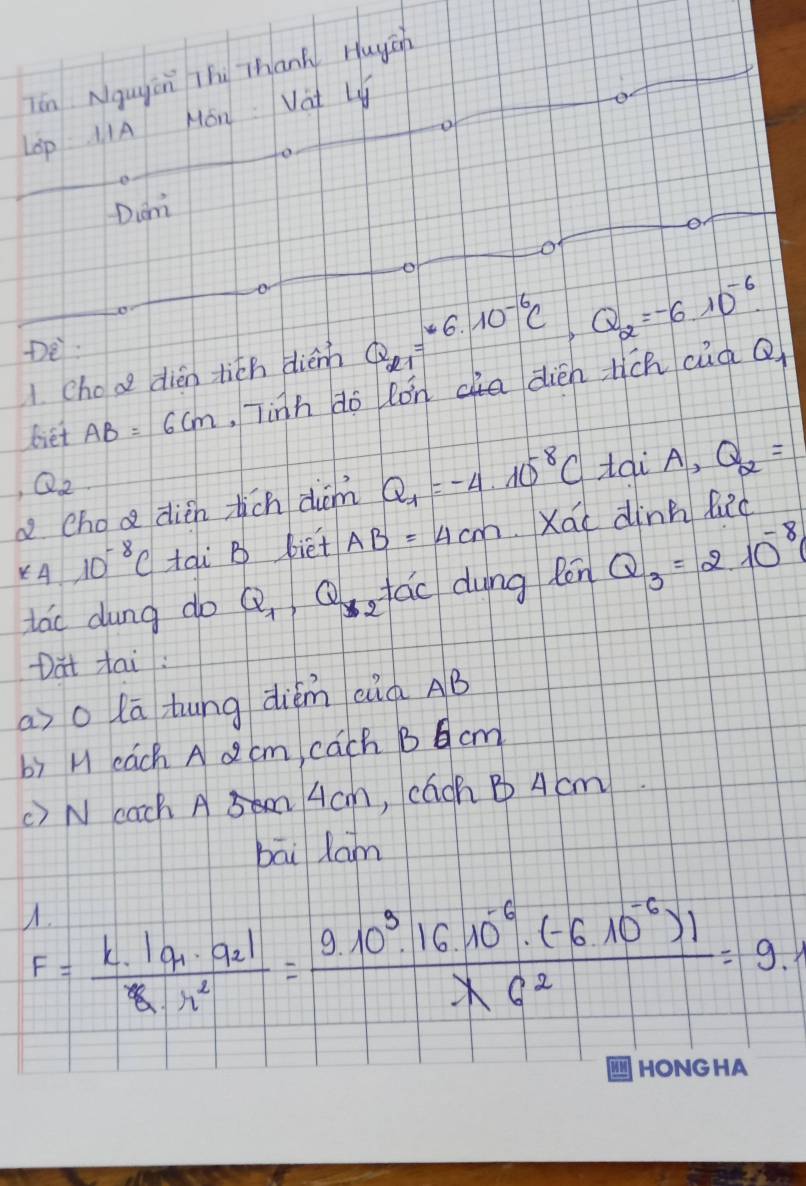 Tên Nguyễn Thị Thanh Huyền
Lớp 11A Môn: Vật Lý
Điểm
Đề:
1. Cho 2 điện tích điểm Q₁ = 6.10⁻⁶C, Q₂ = -6.10⁻⁶
biết AB = 6cm. Tính độ lớn của điện tích của Q₁
, Q₂
2. Cho 2 điện tích điểm Q₁ = -4.10⁻⁸C tại A, Q₂ =
4.10⁻⁸C tại B biết AB = 4cm. Xác định lực
tác dụng do Q₁, Q₂ tác dụng lên Q₃ = 2.10⁻⁸C
Đặt tại:
a) O là trung điểm của AB
b) M cách A 2cm, cách B 6cm
c) N cách A 4cm, cách B 4cm.
bài làm
1.
F = k.|q₁.q₂| / ε.r² = 9.10⁹.|6.10⁻⁶.(-6.10⁻⁶)| / 6² = 9.1
HONG HA